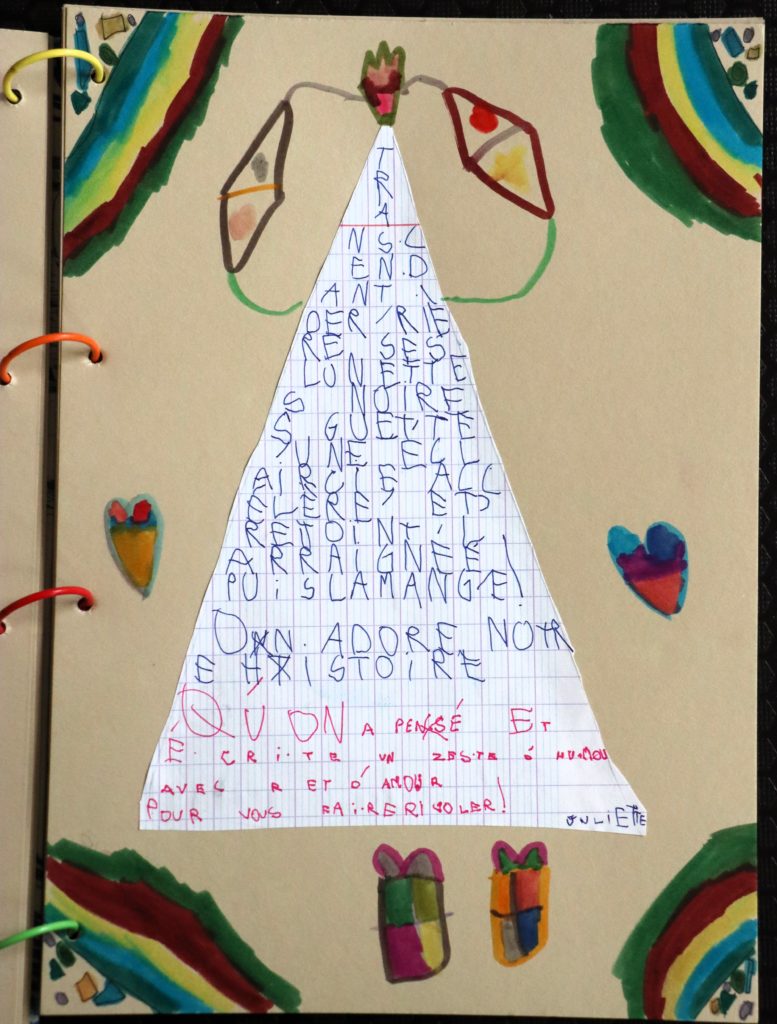 T
R
A
NS.C
EN.D
ANT.
DER/RIE
RE SES
LUNETTE
S NOIRE
S GUETTE
UNE ECL
AIRCIE ACC
ELERE ET
REJOINT L
ARRAIGNÉE
PUiSLAMANGE!
ON. ADORE NOTR
E HISTOIRE
QU'ON A PENSÉ ET
É.CRITE UN ZESTE D'HUMOU
AVEC R ET D'AMOUR
POUR VOUS FAIRERIGOLER!
JULIETTE